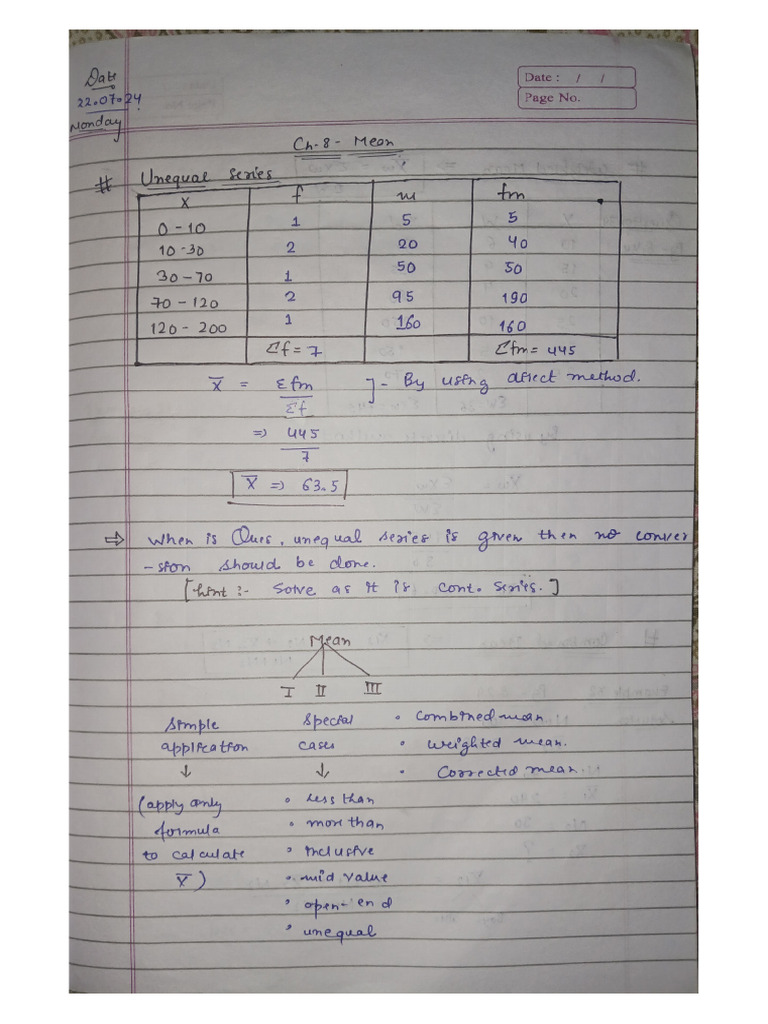 Date
22.07.24
Monday
Date : / /
Page No.
Ch-8- Mean
# Unequal series
x f m fm
0-10 1 5 5
10-30 2 20 40
30-70 1 50 50
70-120 2 95 190
120-200 1 160 160
Σf=7 Σfm= 445
X̄ = Σfm ]- By using direct method.
Σf
=> 445
7
X̄ => 63.5
⇒ When is Ques, unequal series is given then no conver
-sion should be done.
[hint :- Solve as it is cont. series.]
Mean
I II III
Simple special • combined mean
application cases • weighted mean.
↓ ↓ • Corrected mean.
(apply only • less than
formula • more than
to calculate • inclusive
X̄) • mid value
• open-end
• unequal